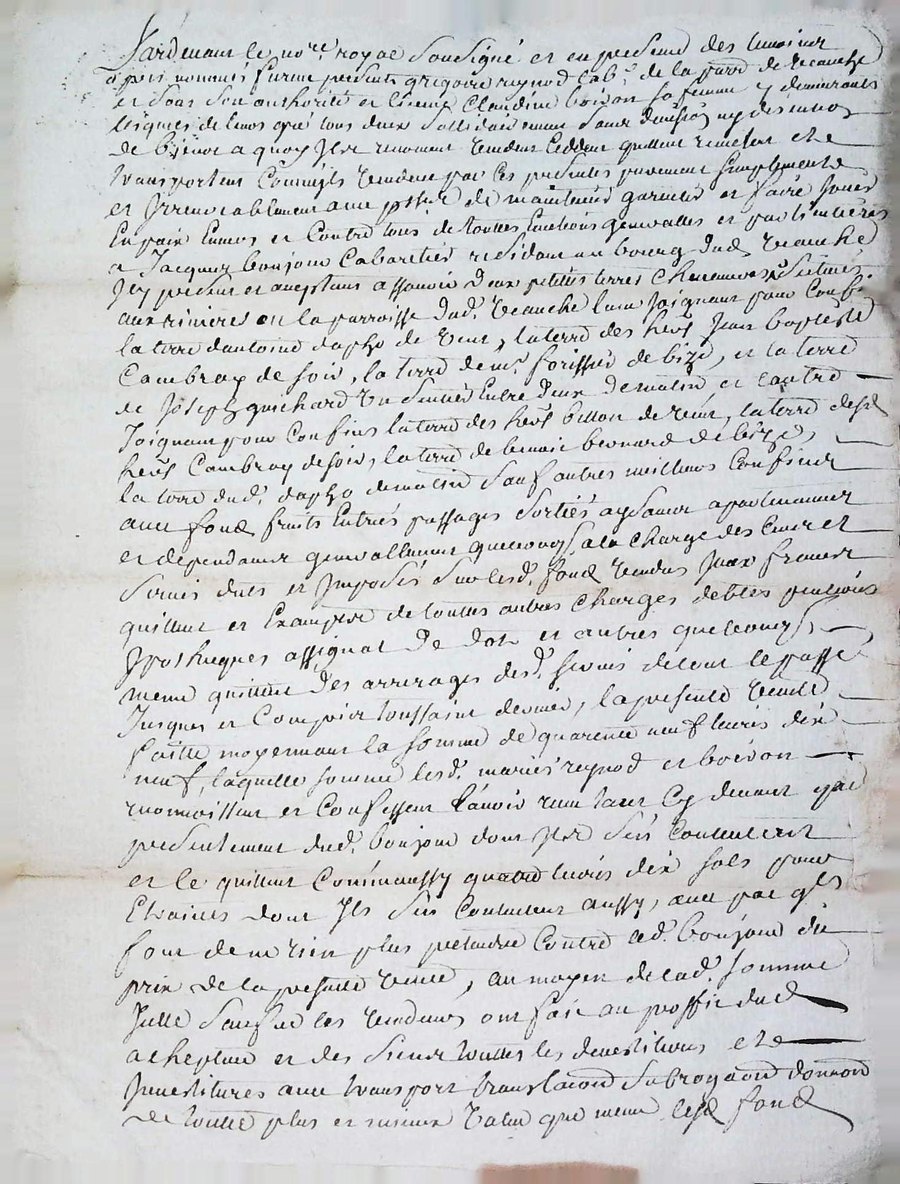 Pardevant le no.re royal Sousigné et en presence des temoins
apres nommés furent presents gregoire reynod lab.r de la parr.e de Veauche
et sous son authorité et licence Claudine boiron sa femme y demeurants
lesquels de leurs gré tous deux sollidairement sans division ny discution
de biens a quoy Ils renoncent vendent ceddent quittent remettent et
transportent comm'ils vendent par ces presentes purement simplement
et Irrevocablement avec promesse de maintenir garentir et faire jouir
En paix Envers et Contre tous de touttes Evictions generalles et particulieres
a Jacques bonjour Cabaretier residant au bourg dud. Veauche
Icy present et aceptant assavoir deux petittes terres situées
aux rivieres en la parroisse dud. Veauche l'une Joignant pour Conf.
la terre d'antoine de vent, la terre des heirs Jean baptiste
Cambray de soir, la terre de m.r forissier de bize, et la terre
de Joseph guichard un sentier Entre deux de matin et l'autre
Joignant pour Confins la terre des heirs billon de vent, la terre desd.
heirs Cambray de soir, la terre de benoit bernard de bize,
la terre dud. de matin sauf autres meilleurs Confins
avec fonds fruits Entrées passages sortiés aysance apartenances
et dependances generallement quelconques a la Charge des Cens et
servis duts et Imposés sur lesd. fond vendus Iceux francs
quittent et Exempts de touttes autres Charges debtes pentions
Ipothieques assignat de dot et autres quelconques
meme quittent des arrerages desd. servis de tout le passé
Jusques et Compris toussaint dernier, la presente vente
faitte moyennant la somme de quarente neuf livres dix
neuf, laquelle somme lesd. mariés reynod et boiron
reconnoissent et Confessent l'avoir reçu tant Cy devant que
presentement dud. bonjour dont Ils s'en Contentent
et le quittent Comm'aussy quatre livres dix sols pour
Etraines dont Ils s'en Contentent aussy, avec pac q'ils
font de ne rien plus pretendre Contre led. bonjour du
prix de la presente vente, au moyen de lad. somme
Jceux les vendeurs ont fait au proffit dud.
achepteur et des siens touttes les devestitures et
Investitures avec transport translation subrogation donnation
de toutte plus et mieux value que meme lesd. fond